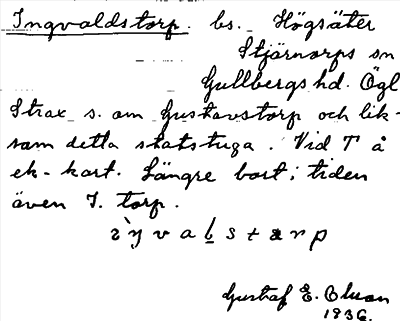 Ingvaldstorp. bs. Högsäter
Stjärnorps sn
Gullbergs hd. Ögl
Strax s. om Gustavstorp och lik-
som detta statstuga. Vid T å
ek-kart. Längre bort i tiden
även I. torp.
Gustaf E. Olsson
1936.